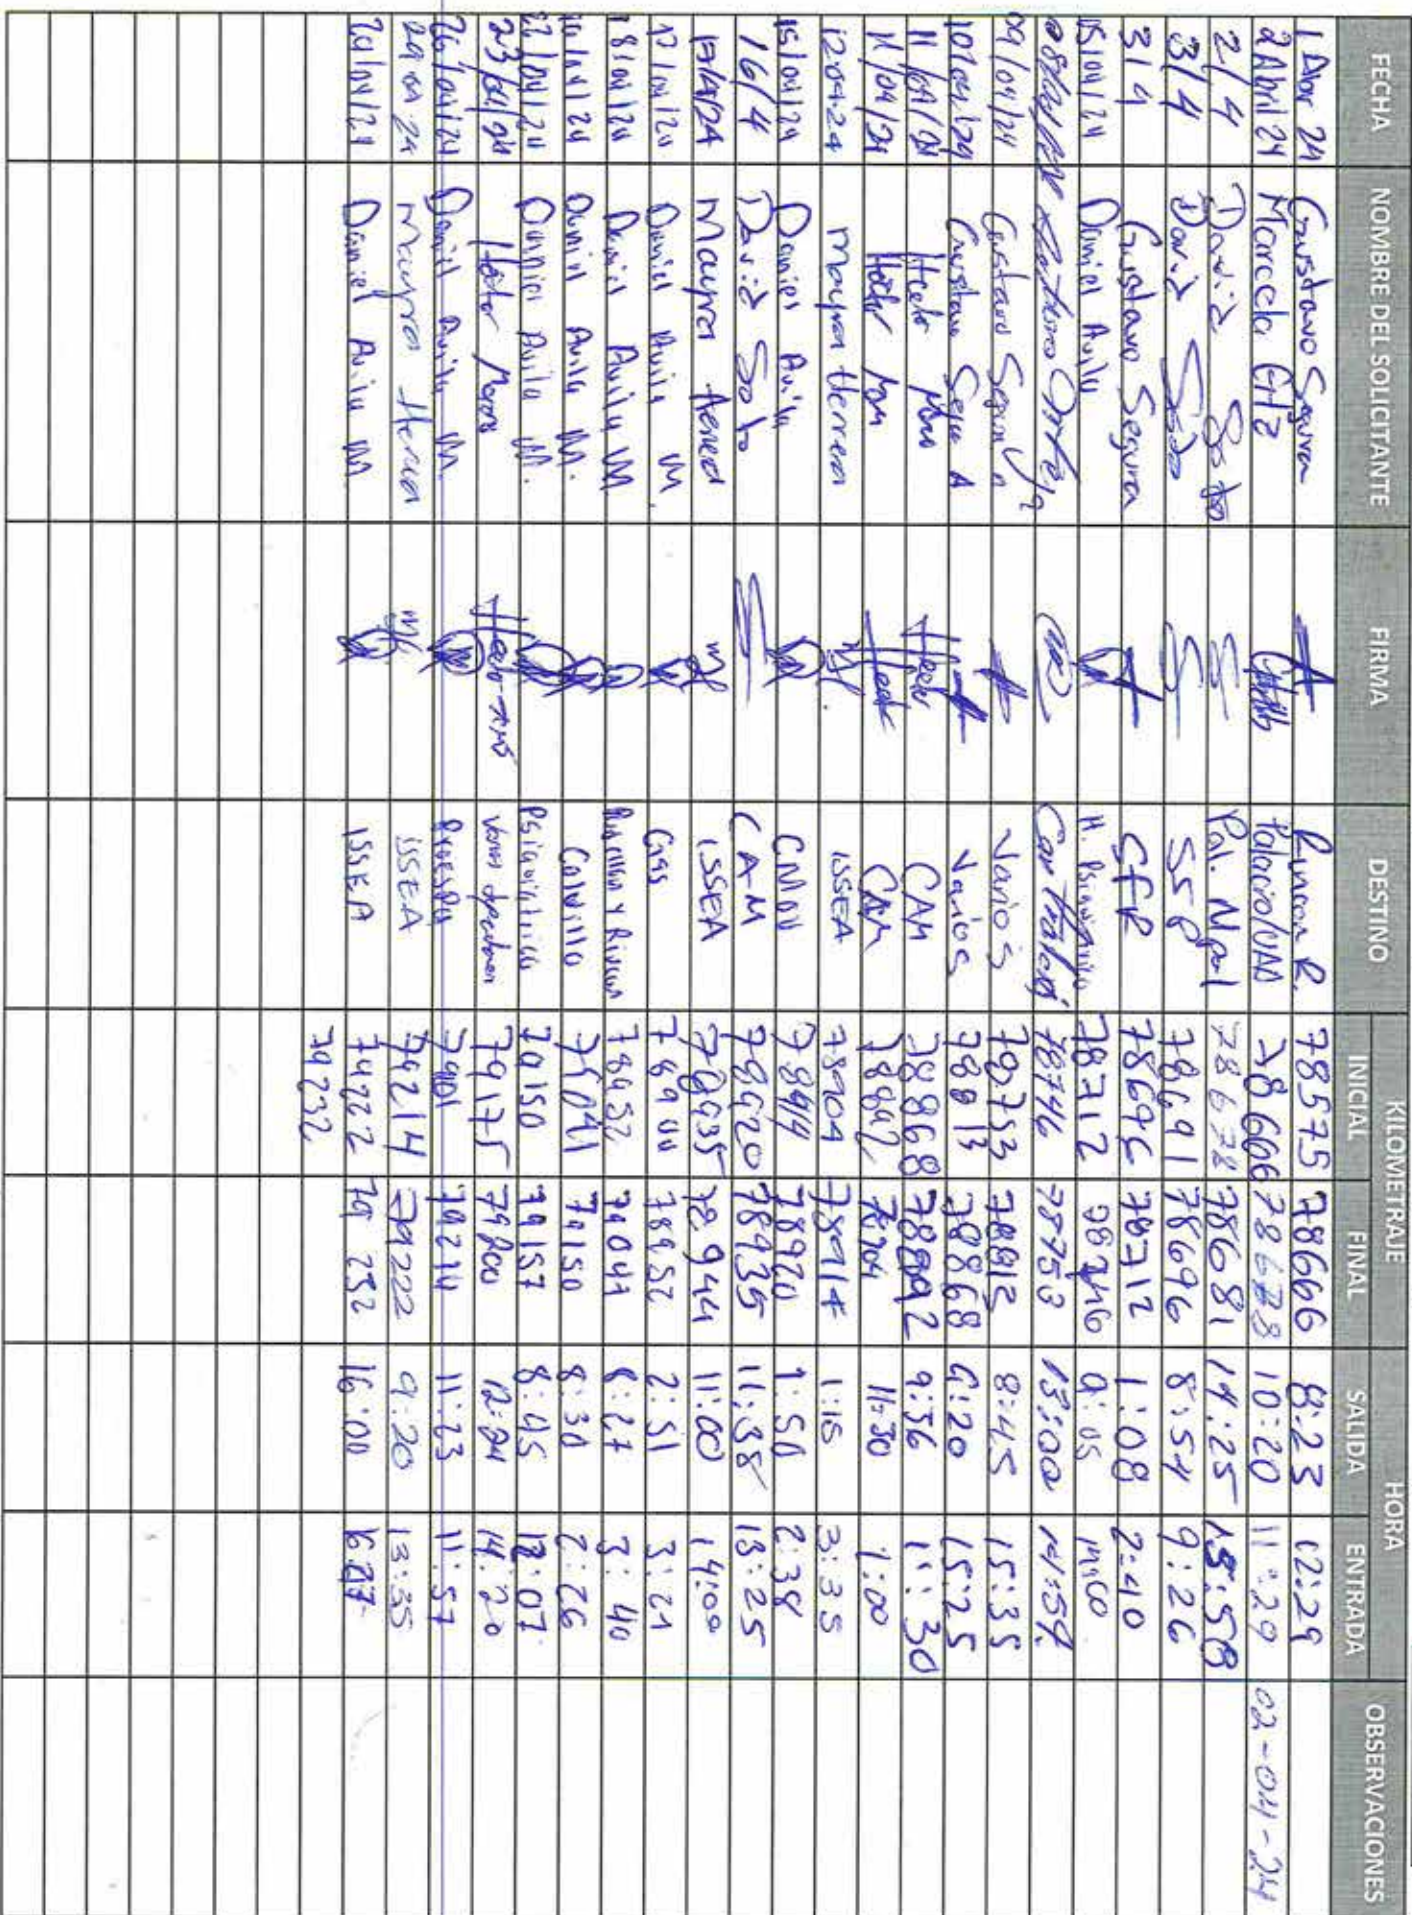 FECHA NOMBRE DEL SOLICITANTE FIRMA DESTINO KILOMETRAJE HORA OBSERVACIONES
INICIAL FINAL SALIDA ENTRADA
1 Abr 24 Gustavo Segura Rincon R. 78575 78666 8:23 12:29
2 Abril 24 Marcela Glz Palacio/UAA 78666 78678 10:20 11:29 02-04-24
2/4 David Soto Pal. Mpal 78678 78681 14:25 15:58
3/4 David Soto SSP 78691 78696 8:54 9:26
3/4 Gustavo Segura 78696 78712 1:08 2:40
05/04/24 Daniel Avila H. Psiquiatrico 78712 78746 9:05
78746 78753 13:00 14:54
09/04/24 Gustavo Segura Varios 78753 78813 8:45 15:35
10/04/24 Gustavo Segura A Varios 78813 78868 9:20 15:25
11/04/24 CAM 78868 78892 9:36 11:30
11/04/24 Hector CAM 78892 78904 11:30 1:00
12-04-24 Mayra Herrera ISSEA 78904 78914 1:15 3:35
15/04/24 Daniel Avila 78914 78920 1:50 2:38
16/4 David Soto CAM 78920 78935 11:38 13:25
17/4/24 Mayra ISSEA 78935 78944 11:00 14:00
17/04/24 Daniel Avila M. 78952 2:51 3:21
18/04/24 Daniel Avila M 78952 79041 8:27 3:40
Daniel Avila M. Calvillo 79041 79150 8:30 2:26
22/04/24 Daniel Avila M. Psiquiatrico 79150 79157 8:45 13:07
23/04/24 Hector 79175 79200 12:24 14:20
26/04/24 Daniel Avila M. 79214 11:23 11:57
29 04 24 Mayra Herrera ISSEA 79214 79222 9:20 13:35
29/04/24 Daniel Avila M ISSEA 79222 79 232 16:00 16:27
79232